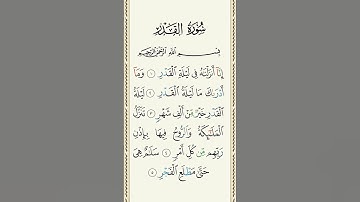 سُورَةُ الْقَدْرِ
بِسْمِ اللَّهِ الرَّحْمَٰنِ الرَّحِيمِ
إِنَّا أَنزَلْنَٰهُ فِى لَيْلَةِ ٱلْقَدْرِ ١ وَمَا
أَدْرَىٰكَ مَا لَيْلَةُ ٱلْقَدْرِ ٢ لَيْلَةُ
ٱلْقَدْرِ خَيْرٌ مِّنْ أَلْفِ شَهْرٍ ٣ تَنَزَّلُ
ٱلْمَلَٰٓئِكَةُ وَٱلرُّوحُ فِيهَا بِإِذْنِ
رَبِّهِم مِّن كُلِّ أَمْرٍ ٤ سَلَٰمٌ هِىَ
حَتَّىٰ مَطْلَعِ ٱلْفَجْرِ ٥